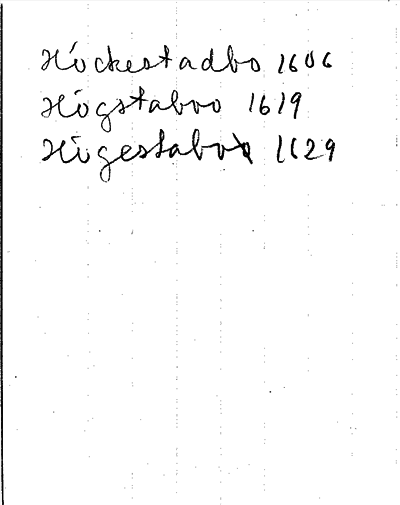 Höckestadbo 1606
Högstaboo 1619
Högestabob 1629